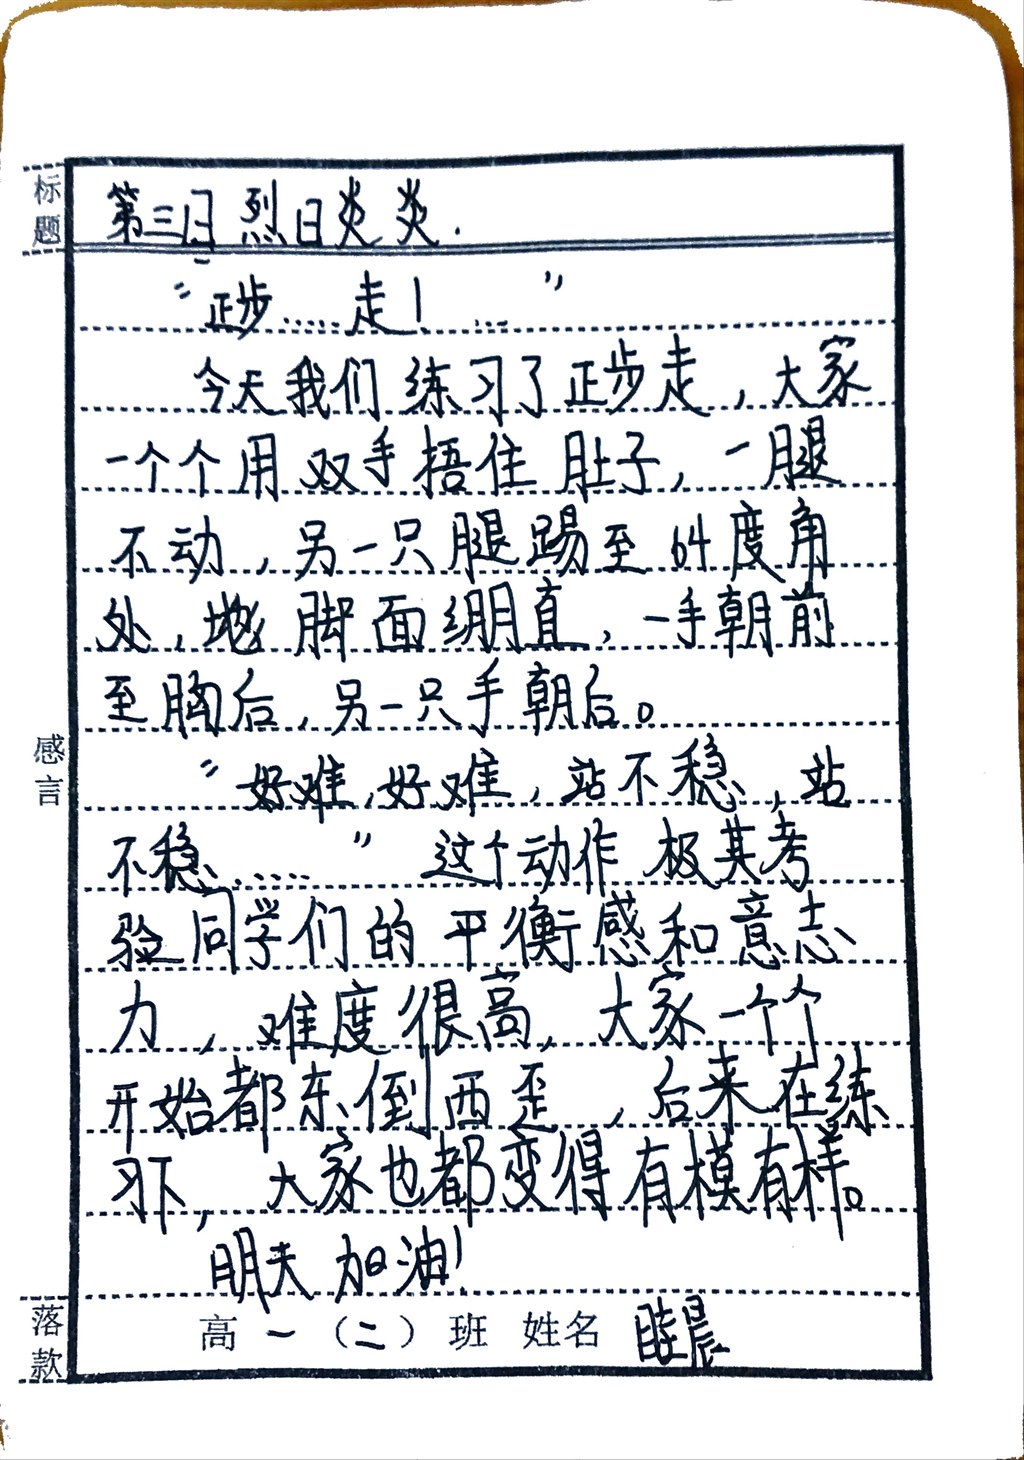 标题
第三日 烈日炎炎.
“正步…… 走！…”
今天我们练习了正步走，大家
一个个用双手捂住肚子，一腿
不动，另一只腿踢至64度角
处，地脚面绷直，一手朝前
至胸后，另一只手朝后。
感言
“好难，好难，站不稳，站
不稳……”这个动作极其考
验同学们的平衡感和意志
力，难度很高，大家一个个
开始都东倒西歪，后来在练
习下，大家也都变得有模有样。
明天加油！
落款
高一（二）班 姓名 眭晨